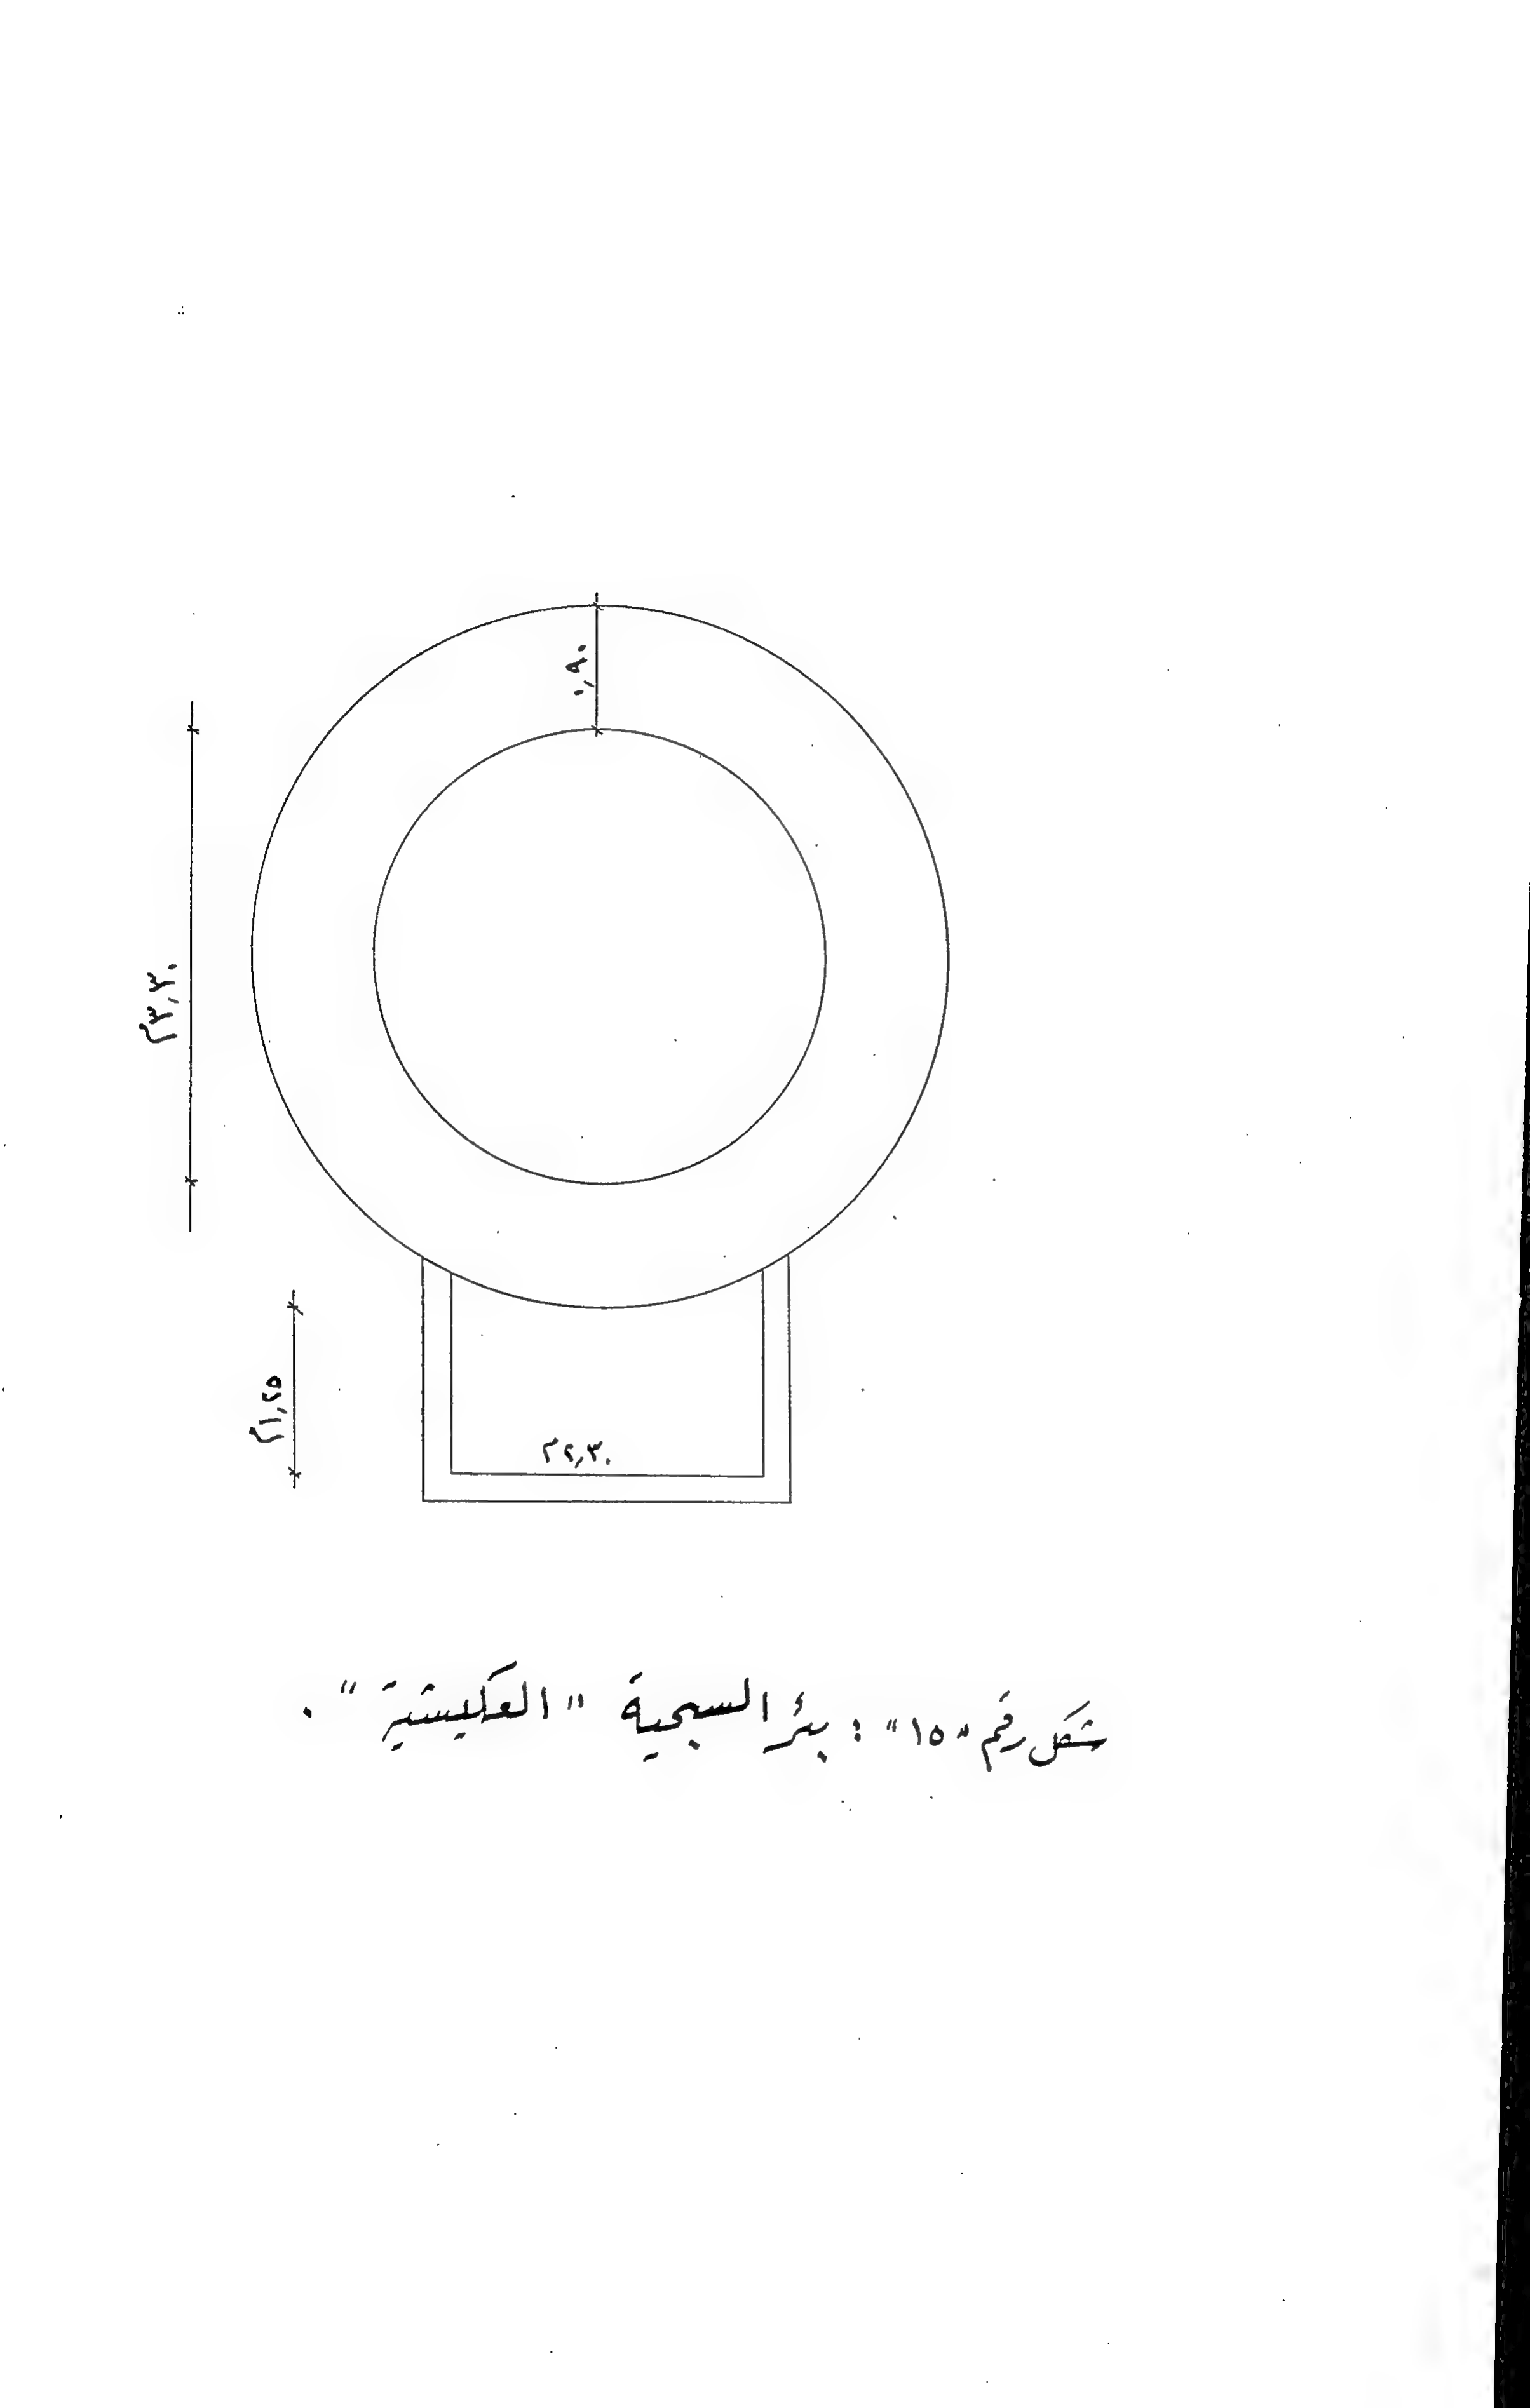 ٠,٩٠
٣,٣٠م
١,٢٥م
٢,٣٠م
شكل رقم "١٥" : بئر السبحية "العكيشية" .